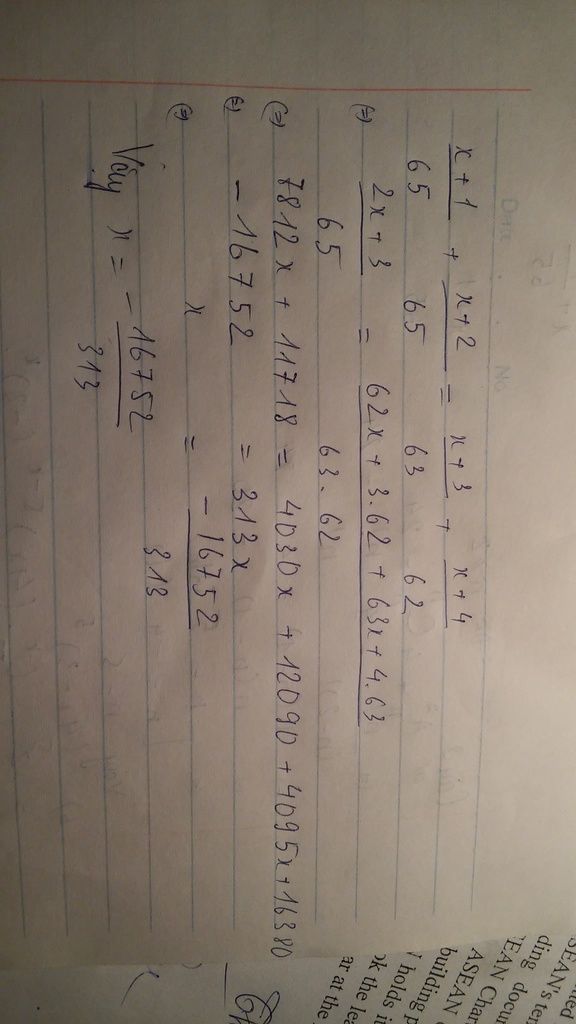 x+1/65 + x+2/65 = x+3/63 + x+4/62
(=) 2x+3/65 = 62x + 3.62 + 63x + 4.63/63.62
(=) 7812x + 11718 = 4030x + 12090 + 4095x + 16380
(=) -16752 = 313x
(=) x = -16752/313
Vậy x = -16752/313
ding docu
ASEAN
building p
holds i
ok the lea
ar at the